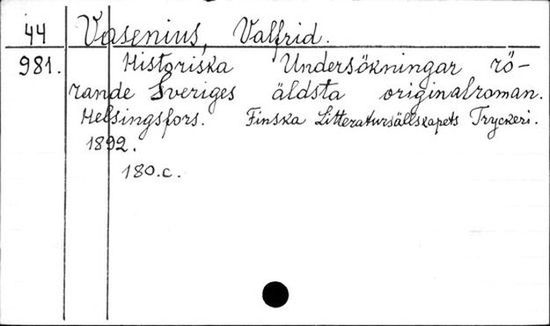 44 Vasenius, Valfrid.
981. Historiska Undersökningar rö-
rande Sveriges äldsta originalroman.
Helsingsfors. Finska Litteratursällskapets Tryckeri.
1892.
180.c.